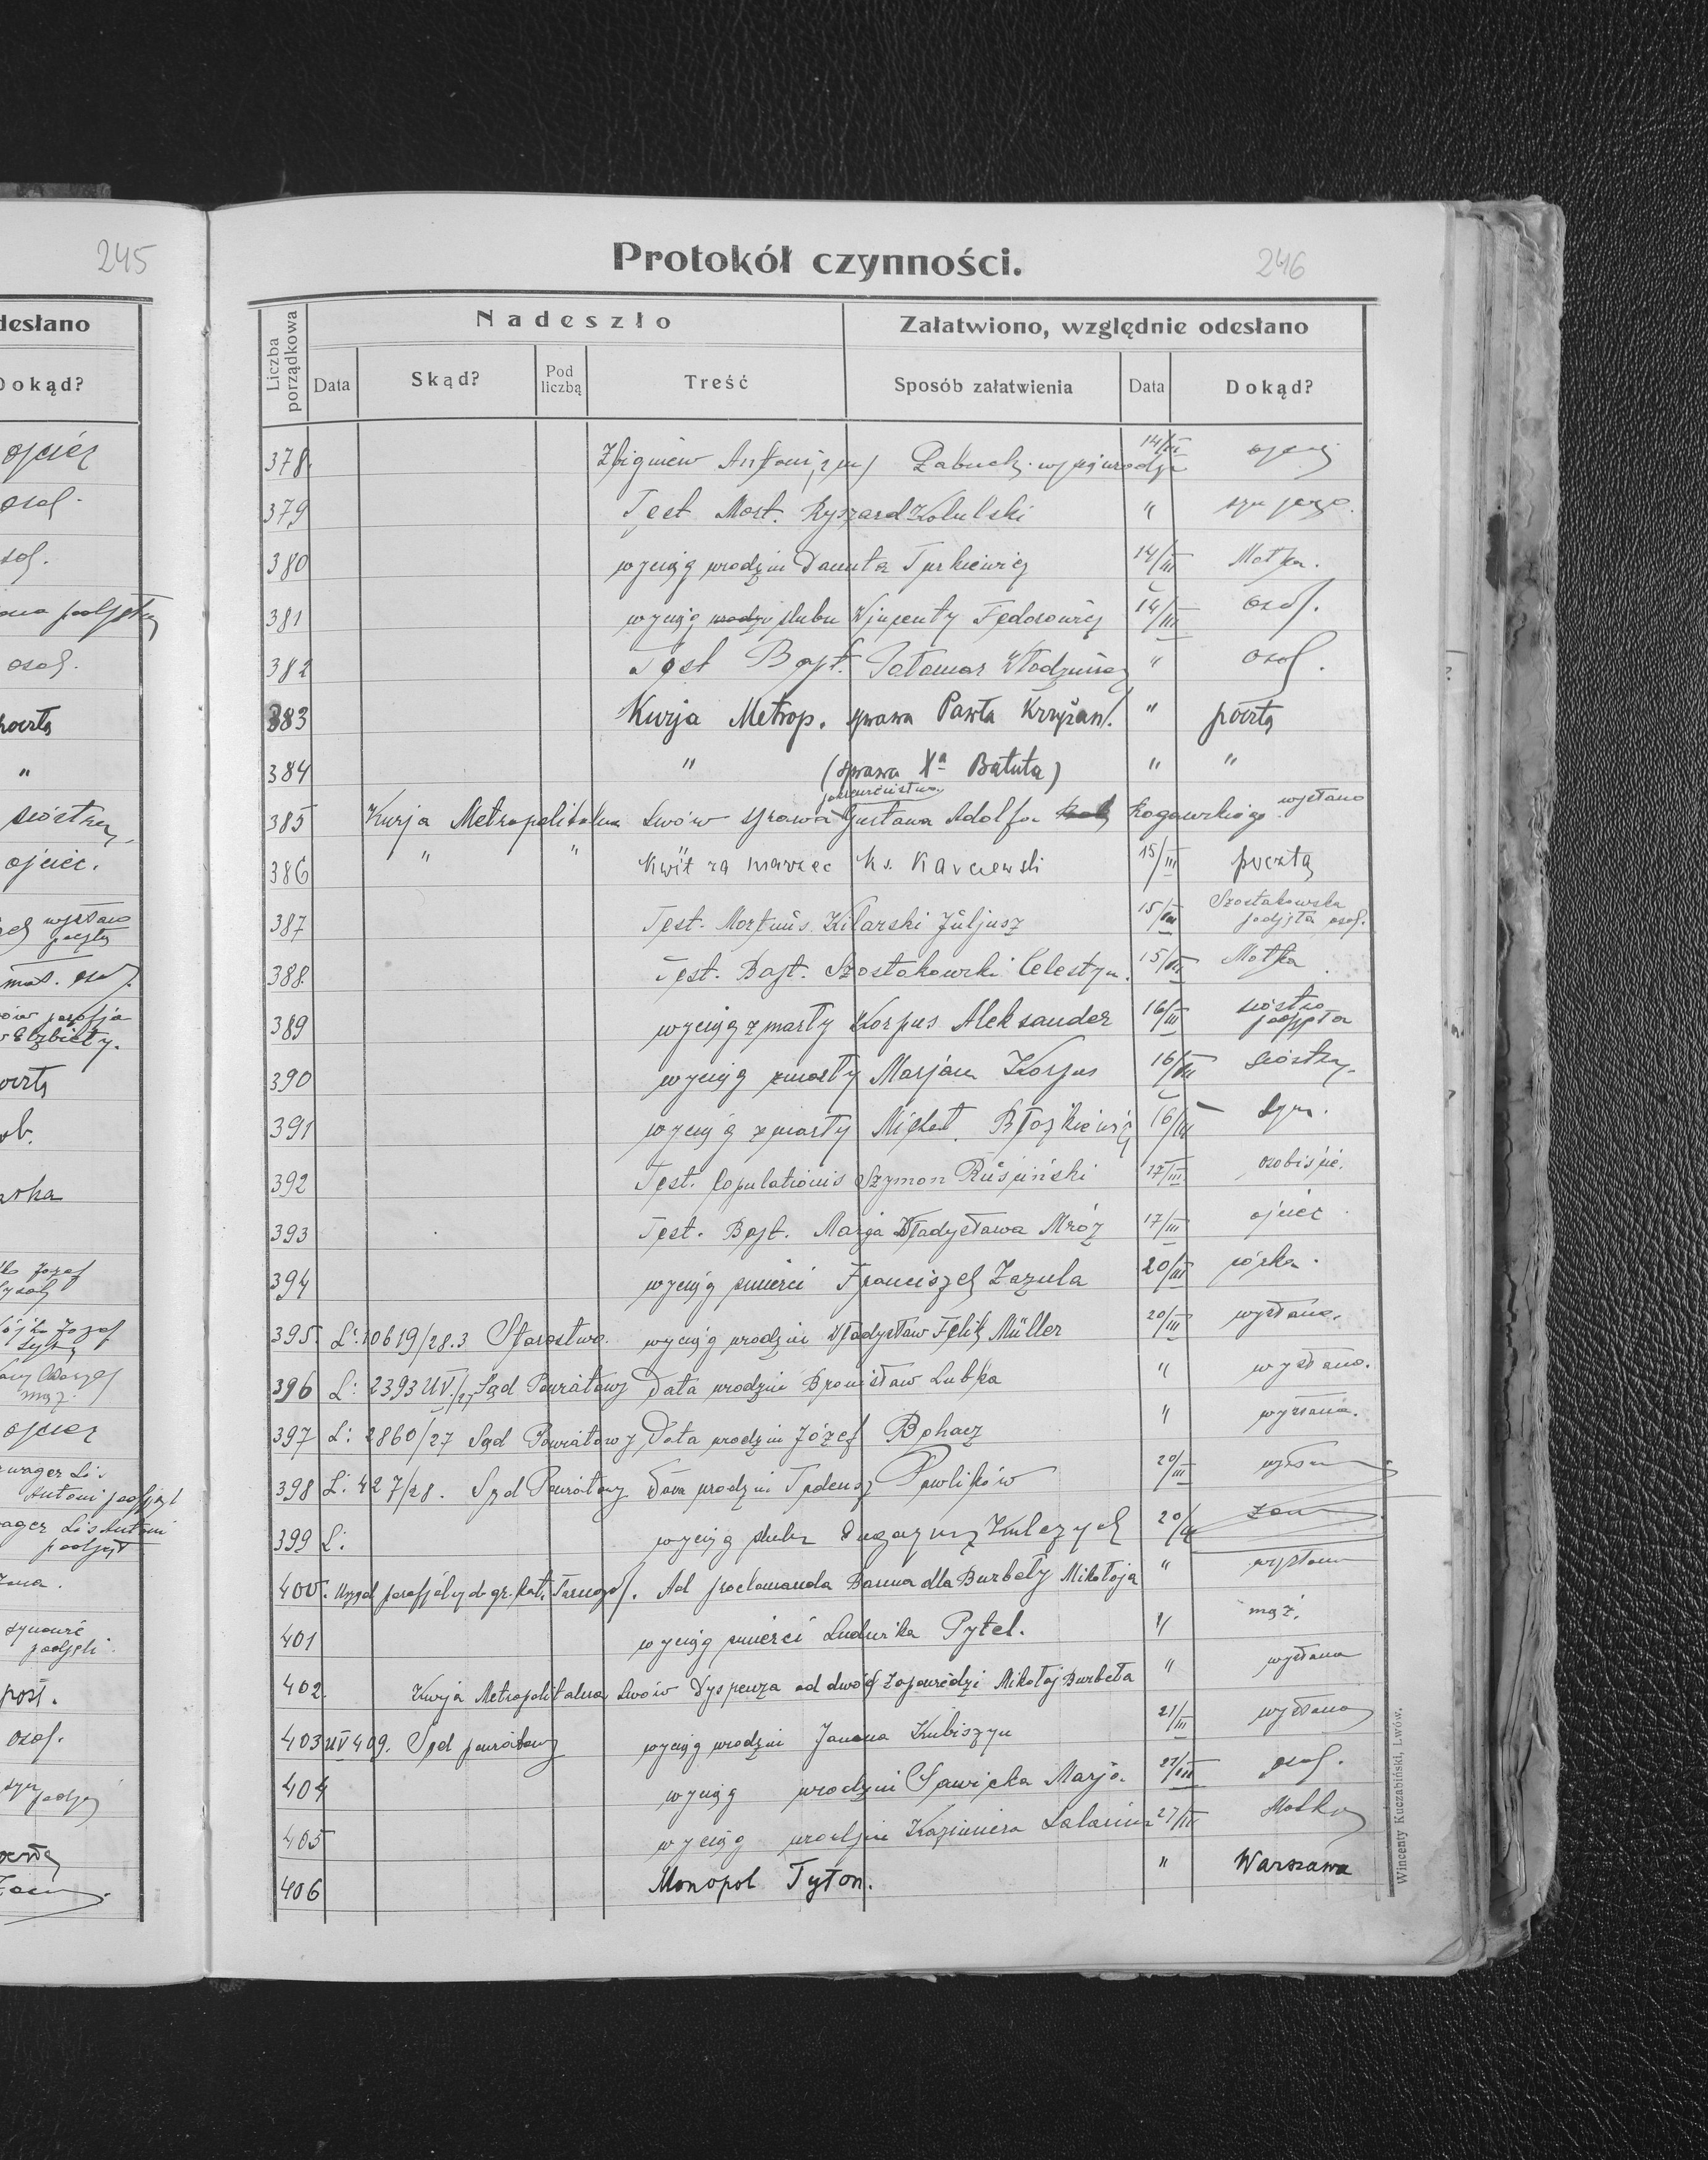 245
desłano
Dokąd?
ojciec
osob.
osob.
osob.
"
siostrze
ojciec.
wysłano
pocztą
mat. osob.
parafja
Elżbiety.
ob.
Józef
Józef
mąż.
ojciec
szwager Lis
Antoni podjął
szwager Lis Antoni
podjął
synowie
podjęli.
poszt.
osob.
syn
Protokół czynności.
246
Liczba porządkowa
Nadeszło
Załatwiono, względnie odesłano
Data
Skąd?
Pod liczbą
Treść
Sposób załatwienia
Data
Dokąd?
378. Zbigniew Antoni 14/III ojciec
379 Test. Mort. Ryszard Kobulski " syn
380 wyciąg urodzin Danuta Turkiewicz 14/III Matka.
381 wyciąg urodzin ślubu Wincenty Fedorowicz 14/III osob.
382 Test Bapt. Patamar Włodzimierz " osob.
383 Kurja Metrop. sprawa Pawła Krzyżan. " pocztą
384 " (sprawa Xa Batuta) " "
385 Kurja Metropolitalna Lwów sprawa Gustawa Adolfa Rogowskiego. wysłano
386 " " Kwit za marzec ks. Karczewski 15/III pocztą
387 Test. Mortuus. Kilarski Juljusz 15/III Szostakowska
podjęła osob.
388. Test. Bapt. Szostakowski Celestyn. 15/III Matka
389 wyciąg zmarły Korpus Aleksander 16/III siostra
podjęła
390 wyciąg zmarły Marjan Korpus 16/III siostrze
391 wyciąg zmarły Michał 16/III Syn.
392 Test. Copulationis Szymon Rusiński 17/III osobiście.
393 Test. Bapt. Marja Władysława Mróz 17/III ojciec
394 wyciąg śmierci Franciszek Zazula 20/III córka.
395. L: 10619/28.3 Starostwo. wyciąg urodzin Władysław Feliks Müller 20/III wysłano.
396 L: 2393 UV./27 Sąd Powiatowy Data urodzin Bronisław Lubka " wysłano.
397 L: 2860/27 Sąd Powiatowy Data urodzin Józef Bohacz " wysłano.
398 L: 427/28. Sąd Powiatowy Data urodzin Tadeusz Pawlików 20/III
399 L: wyciąg ślubu 20/III
400. Urząd parafjalny gr. kat. Tarnopol. Ad proclamanda Banna dla Burbeły Mikołaja " wysłano
401 wyciąg śmierci Ludwika Pytel. " mąż.
402. Kurja Metropolitalna Lwów Dyspenza od dwóch zapowiedzi Mikołaj Burbeła " wysłano
403 UV 409. Sąd powiatowy wyciąg urodzin Janina Kubiszyn 21/III wysłano
404 wyciąg urodzin Sawicka Marja. 27/III osob.
405 wyciąg urodzin Kazimiera 27/III Matka
406 Monopol Tyton. " Warszawa
Wincenty Kuczabiński, Lwów.